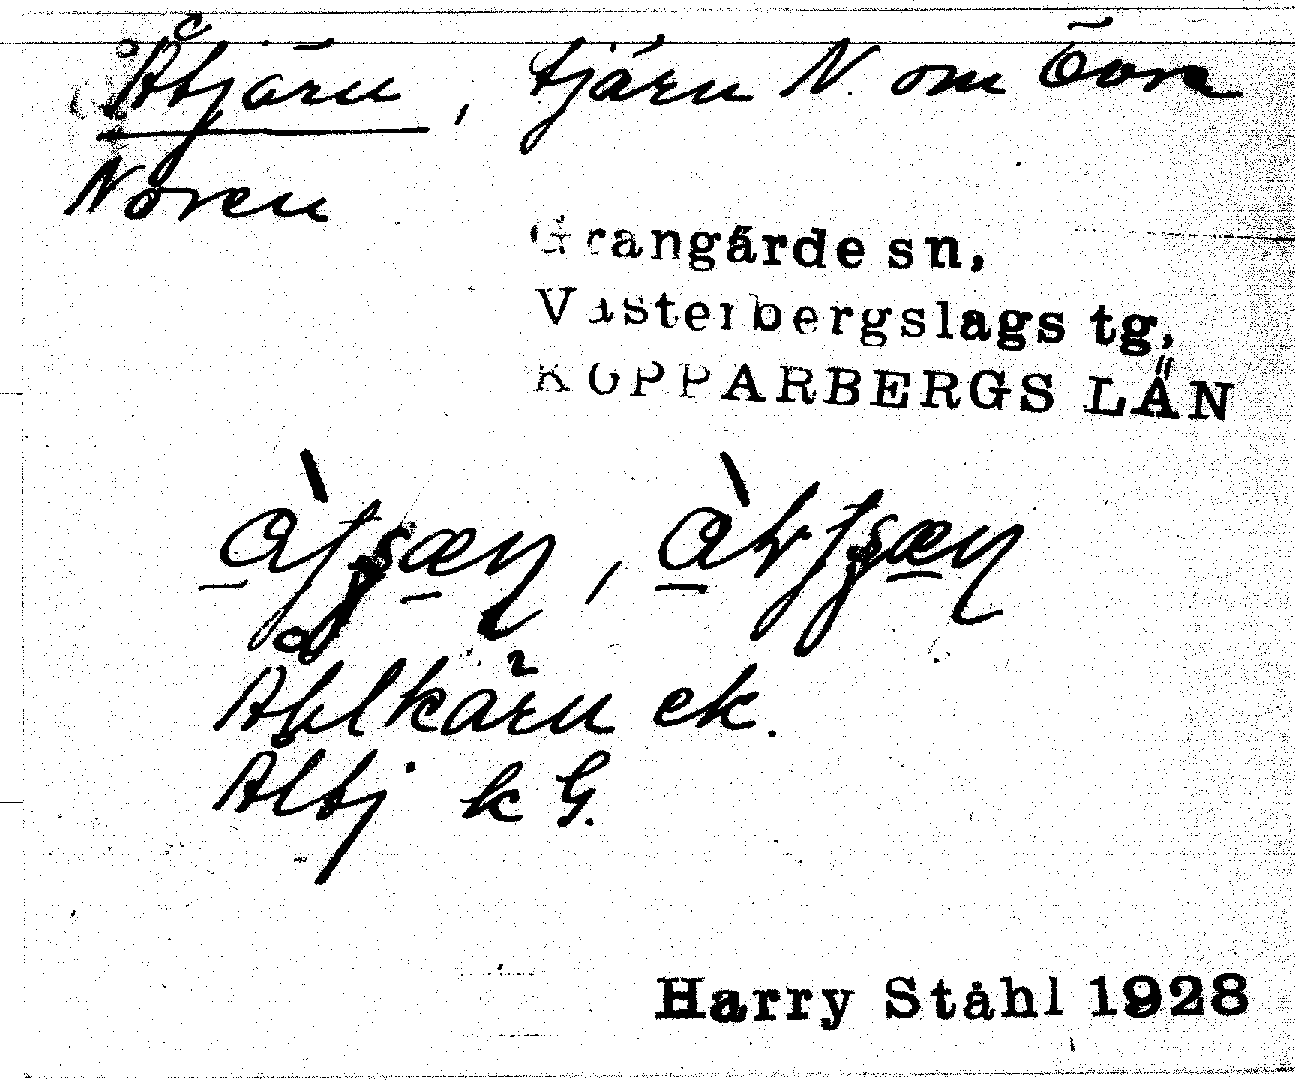 Åtjärn, tjärn N. om Övre
Noren
Grangärde sn,
Västerbergslags tg,
KOPPARBERGS LÄN
Åblkärn ek.
Åltj k G.
Harry Ståhl 1928